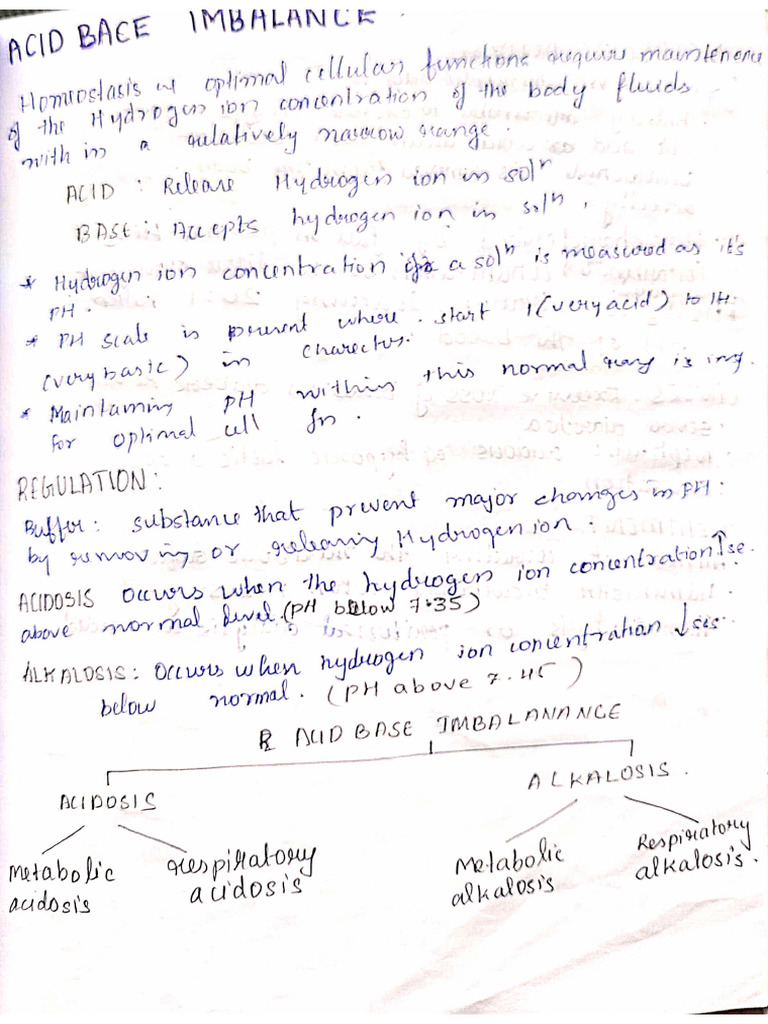 ACID BACE IMBALANCE.
Homeostasis & optimal cellular functions require maintenence
of the Hydrogen ion concentration of the body fluids
with in a relatively narrow range.
ACID : Release Hydrogen ion in solⁿ
BASE : Accepts hydrogen ion in solⁿ.
* Hydrogen ion concentration a solⁿ is measured as it's
PH.
* PH scale is present where start 1(very acid) to 14
(very basic) in charecter.
* Maintaining PH within this normal rang is imp.
for optimal cell fn.
REGULATION:
Buffer: substance that prevent major changes in PH.
by removing or releaing Hydrogen ion.
ACIDOSIS occurs when the hydrogen ion concentration ↑se.
above normal level. (PH below 7.35)
ALKALOSIS: occurs when hydrogen ion concentration ↓ses
below normal. (PH above 7.45)
ACID BASE IMBALANANCE
ACIDOSIS ALKALOSIS.
Metabolic acidosis respiratory acidosis Metabolic alkalosis Respiratory alkalosis.